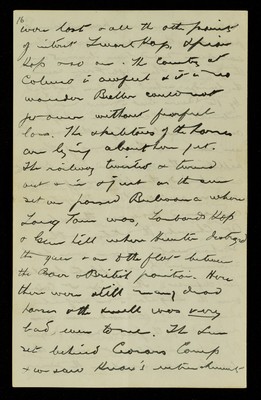 16
were lost & all the other points
of interest Kop, Spion
Kop & so on. The country at
Colenso is awful & it is no
wonder Buller could not
go over without frightful
loss. The skeletons of the horses
are lying about here yet.
The railway twisted & turned
out & in & just as the sun
set we passed Bulwana where
Long Tom was, Lombards Kop
& Gun Hill where Hunter destroyed
the guns & on to the flat between
the Boer & British position. Here
there were still many dead
horses & the smell was very
bad, even to me. The sun
set behind Caesars Camp
& we saw Knox's entrenchment